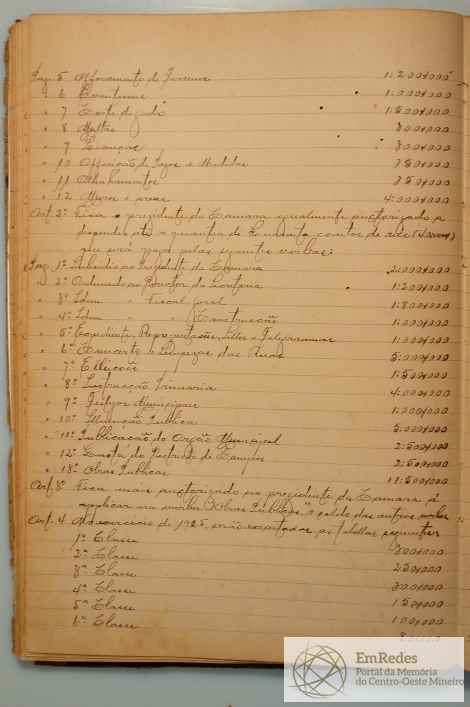 Parg. 5 Afforamento de Terrenos 1:200$000
" 6 Eventuaes 1:000$000
" 7 Córte de gado 1:500$000
" 8 Multas 300$000
" 9 Licenças 800$000
" 10 Afferição de Pezos e Medidas 350$000
" 11 Alinhamentos 350$000
" 12 Muros e 4:000$000
Art. 2º Fica o presidente da Camara egualmente auctorizado a
despender até a quantia de contos de reis
que será paga pelas seguintes verbas:
Parg. 1º Subsidio ao Presidente da Camara 2:000$000
" 2º Ordenado ao Director da Secretaria 1:200$000
" 3º Idem " Fiscal Geral 1:800$000
" 4º Idem " " Construcção 1:000$000
" 5º Expediente, Representações, Sellos e Telegrammas 1:000$000
" 6º Concerto e Limpezas das Ruas 5:000$000
" 7º Elleições 1:500$000
" 8º Instrucção Primaria 4:000$000
" 9º Festejos Municipaes 1:000$000
" 10º Illuminação Publica 5:000$000
" 11º Publicação do Orgão Municipal 2:500$000
" 12º do Districto de Campos 2:500$000
" 13º Obras Publicas 11:500$000
Art. 3º Fica mais auctorizado ao presidente da Camara á
applicar na verba "Obras Publicas," o saldo das outras verbas
Art. 4 No exercicio de 1925, serão executadas as tabellas seguintes
1ª Classe 300$000
2ª Classe 250$000
3ª Classe 200$000
4ª Classe 150$000
5ª Classe 100$000
6ª Classe
EmRedes
Portal da Memória
do Centro-Oeste Mineiro